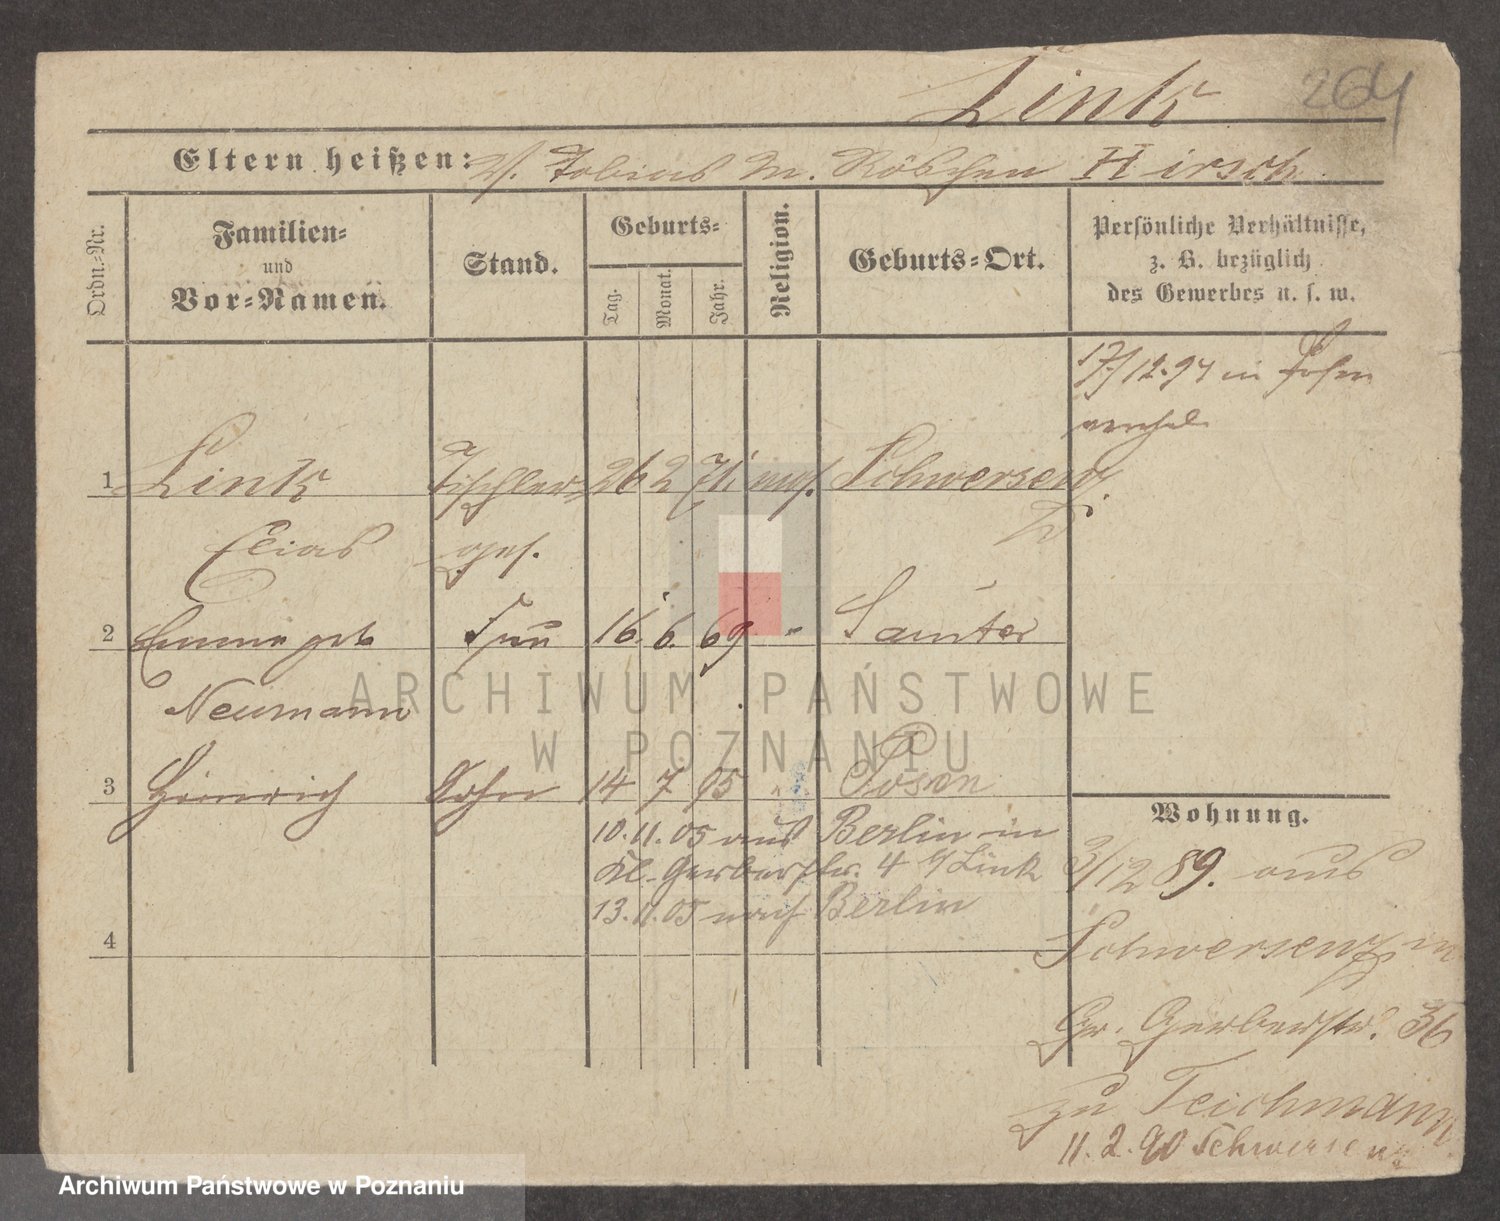 Link
264
Eltern heißen: V. Tobias M. Röschen Hirsch.
Ordn.-Nr.
Familien-
und
Vor-Namen.
Stand.
Geburts-
Tag.
Monat.
Jahr.
Religion.
Geburts-Ort.
Persönliche Verhältnisse,
z. B. bezüglich
des Gewerbes u. s. w.
17/12.94 in Posen
1 Link Tischler 26 2 71 mos. Schwersenz
Elias ges.
2 Emma geb Frau 16. 6. 69 " Samter
Neumann
3 Heinrich Sohn 14 7 95 Posen
10.11.05 aus Berlin in
Kl. Gerberstr. 4 b/ Link
13.11.05 nach Berlin
4
Wohnung.
3/12 89. aus
Schwersenz in
Gr. Gerberstr. 36
zu Teichmann
11.2.90 Schwersenz
ARCHIWUM PAŃSTWOWE
W POZNANIU
Archiwum Państwowe w Poznaniu